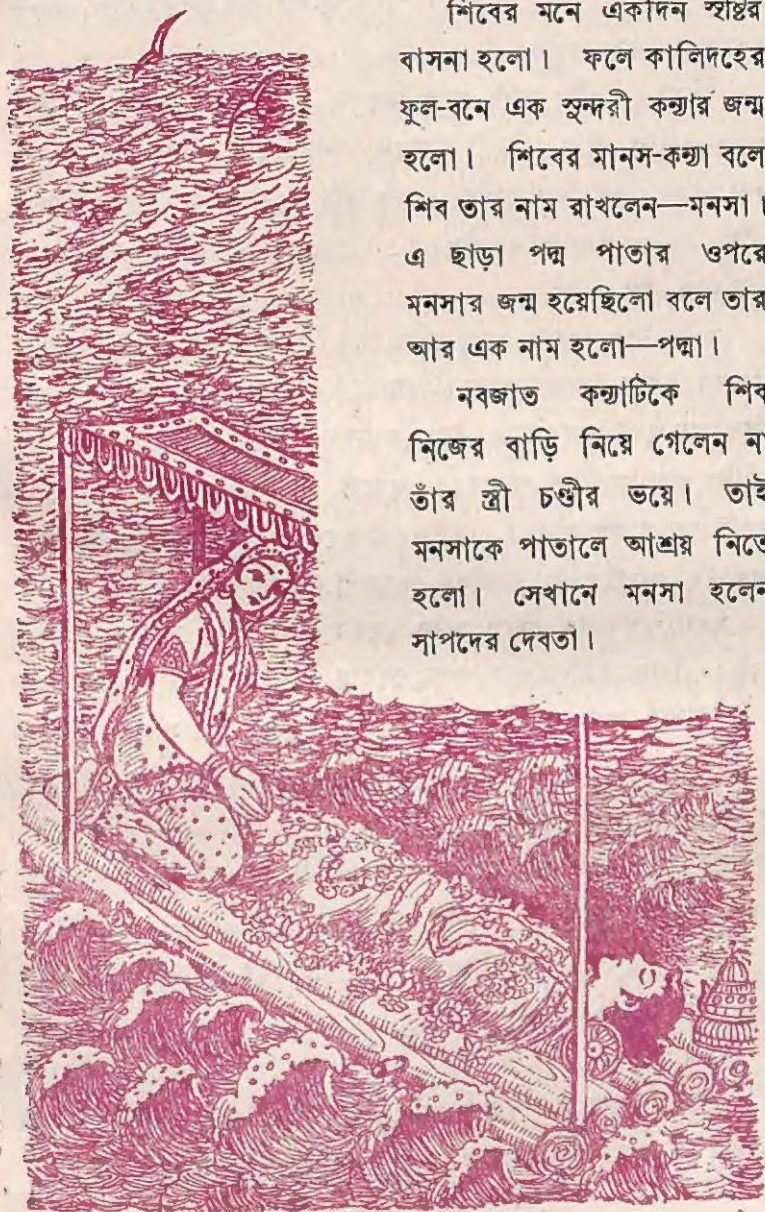 শিবের মনে একদিন সৃষ্টির
বাসনা হলো। ফলে কালিদহের
ফুল-বনে এক সুন্দরী কন্যার জন্ম
হলো। শিবের মানস-কন্যা বলে
শিব তার নাম রাখলেন—মনসা।
এ ছাড়া পদ্ম পাতার ওপরে
মনসার জন্ম হয়েছিলো বলে তার
আর এক নাম হলো—পদ্মা।
নবজাত কন্যাটিকে শিব
নিজের বাড়ি নিয়ে গেলেন না
তাঁর স্ত্রী চণ্ডীর ভয়ে। তাই
মনসাকে পাতালে আশ্রয় নিতে
হলো। সেখানে মনসা হলেন
সাপদের দেবতা।